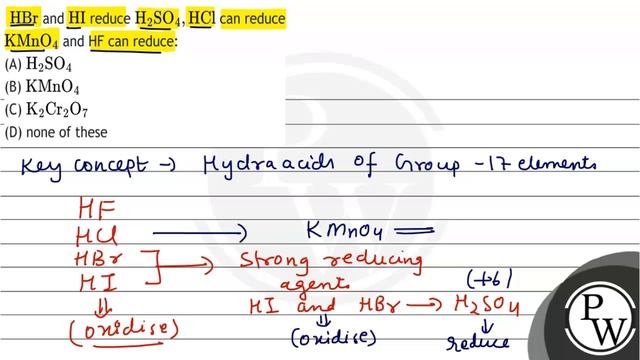 HBr and HI reduce H₂SO₄, HCl can reduce
KMnO₄ and HF can reduce:
(A) H₂SO₄
(B) KMnO₄
(C) K₂Cr₂O₇
(D) none of these
Key concept → Hydraacids of Group -17 elements
HF
HCl → KMnO₄
HBr → Strong reducing
HI agent
HI and HBr → H₂SO₄ (+6)
⇓ ⇓ ↓
(oxidise) (oxidise) reduce
PW